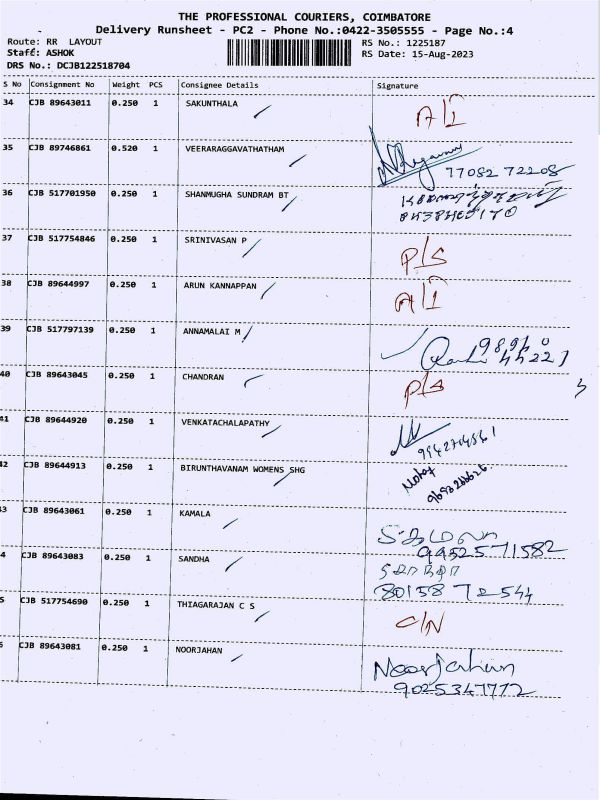 THE PROFESSIONAL COURIERS, COIMBATORE
Delivery Runsheet - PC2 - Phone No.:0422-3505555 - Page No.:4
Route: RR LAYOUT RS No.: 1225187
Staff: ASHOK RS Date: 15-Aug-2023
DRS No.: DCJB122518704
S No Consignment No Weight PCS Consignee Details Signature
34 CJB 89643011 0.250 1 SAKUNTHALA A/I
35 CJB 89746861 0.520 1 VEERARAGGAVATHATHAM
77082 72208
36 CJB 517701950 0.250 1 SHANMUGHA SUNDRAM BT
37 CJB 517754846 0.250 1 SRINIVASAN P P/S
38 CJB 89644997 0.250 1 ARUN KANNAPPAN A/I
39 CJB 517797139 0.250 1 ANNAMALAI M
40 CJB 89643045 0.250 1 CHANDRAN P/S
41 CJB 89644920 0.250 1 VENKATACHALAPATHY
42 CJB 89644913 0.250 1 BIRUNTHAVANAM WOMENS SHG
43 CJB 89643061 0.250 1 KAMALA
9952571582
4 CJB 89643083 0.250 1 SANDHA
80158 72544
5 CJB 517754690 0.250 1 THIAGARAJAN C S C/N
6 CJB 89643081 0.250 1 NOORJAHAN Noorjahan
9025347772